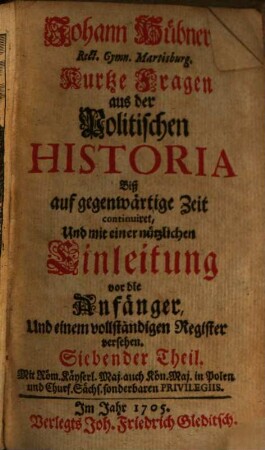 Johann Hübner
Rect. Gymn. Martisburg.
Kurtze Fragen
aus der
Politischen
HISTORIA
Biß
auf gegenwärtige Zeit
continuiret,
Und mit einer nützlichen
Einleitung
vor die
Anfänger,
Und einem vollständigen Register
versehen.
Siebender Theil.
Mit Röm. Käyserl. Maj. auch Kön. Maj. in Polen
und Churf. Sächs. sonderbaren PRIVILEGIIS.
Im Jahr 1705.
Verlegts Joh. Friedrich Gleditsch.